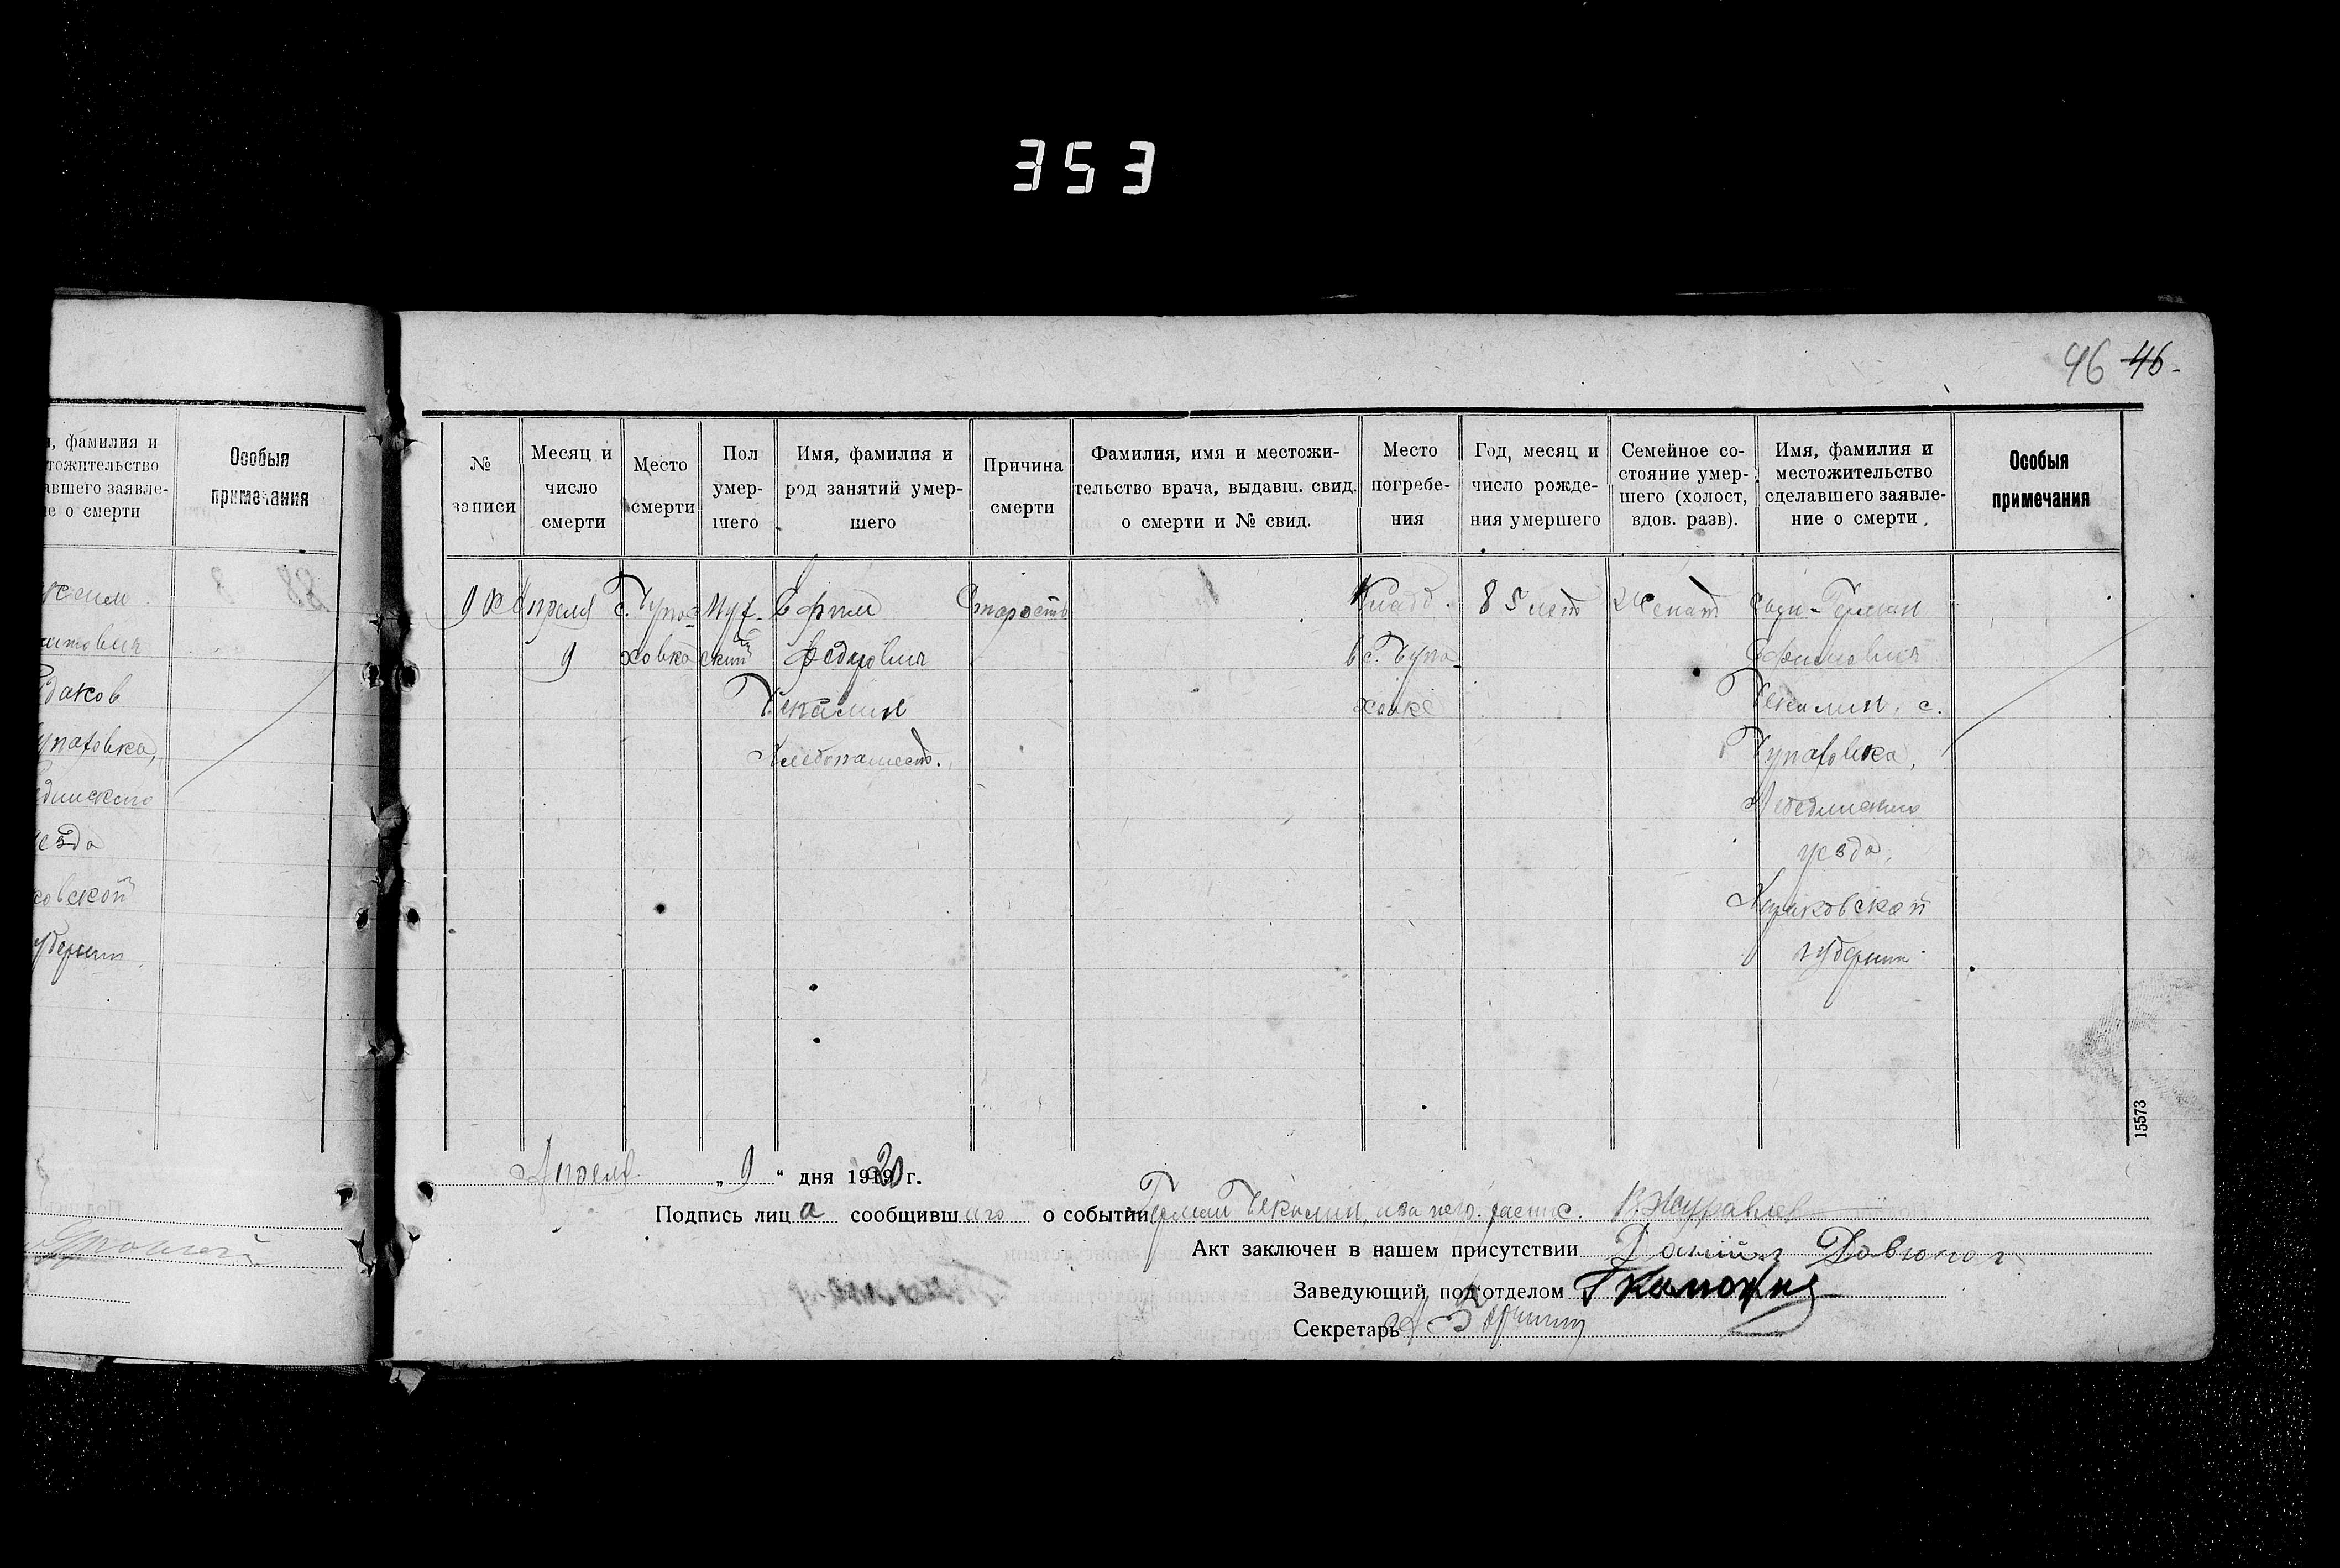 353
46 46-
, фамилия и
тожительство
авшего заявле-
е о смерти
Особыя
примечания
даков
уездо
ковской
№
записи
Месяц и
число
смерти
Место
смерти
Пол
умер-
шего
Имя, фамилия и
род занятий умер-
шего
Причина
смерти
Фамилия, имя и местожи-
тельство врача, выдавш. свид.
о смерти и № свид.
Место
погребе-
ния
Год, месяц и
число рожде-
ния умершего
Семейное со-
стояние умер-
шего (холост,
вдов. разв).
Имя, фамилия и
местожительство
сделавшего заявле-
ние о смерти.
Особыя
примечания
Апреля
9
с. Чупа-
ховка
Муж-
ский
Ефим
Федорович
Чекалин
Хлебопашест.
Старость
Кладб.
в с. Чупа-
ховке
85 лет
Женат
сын Герман
Ефимович
Чекалин, с.
Чупаховка,
Лебединского
уезда,
Харьковской
губернии
15573
Апреля „ 9 “ дня 1920 г.
Подпись лица сообщившего о событии Герман Чекалин, а за него распис. В Журавлев
Акт заключен в нашем присутствии
Заведующий подотделом
Секретарь